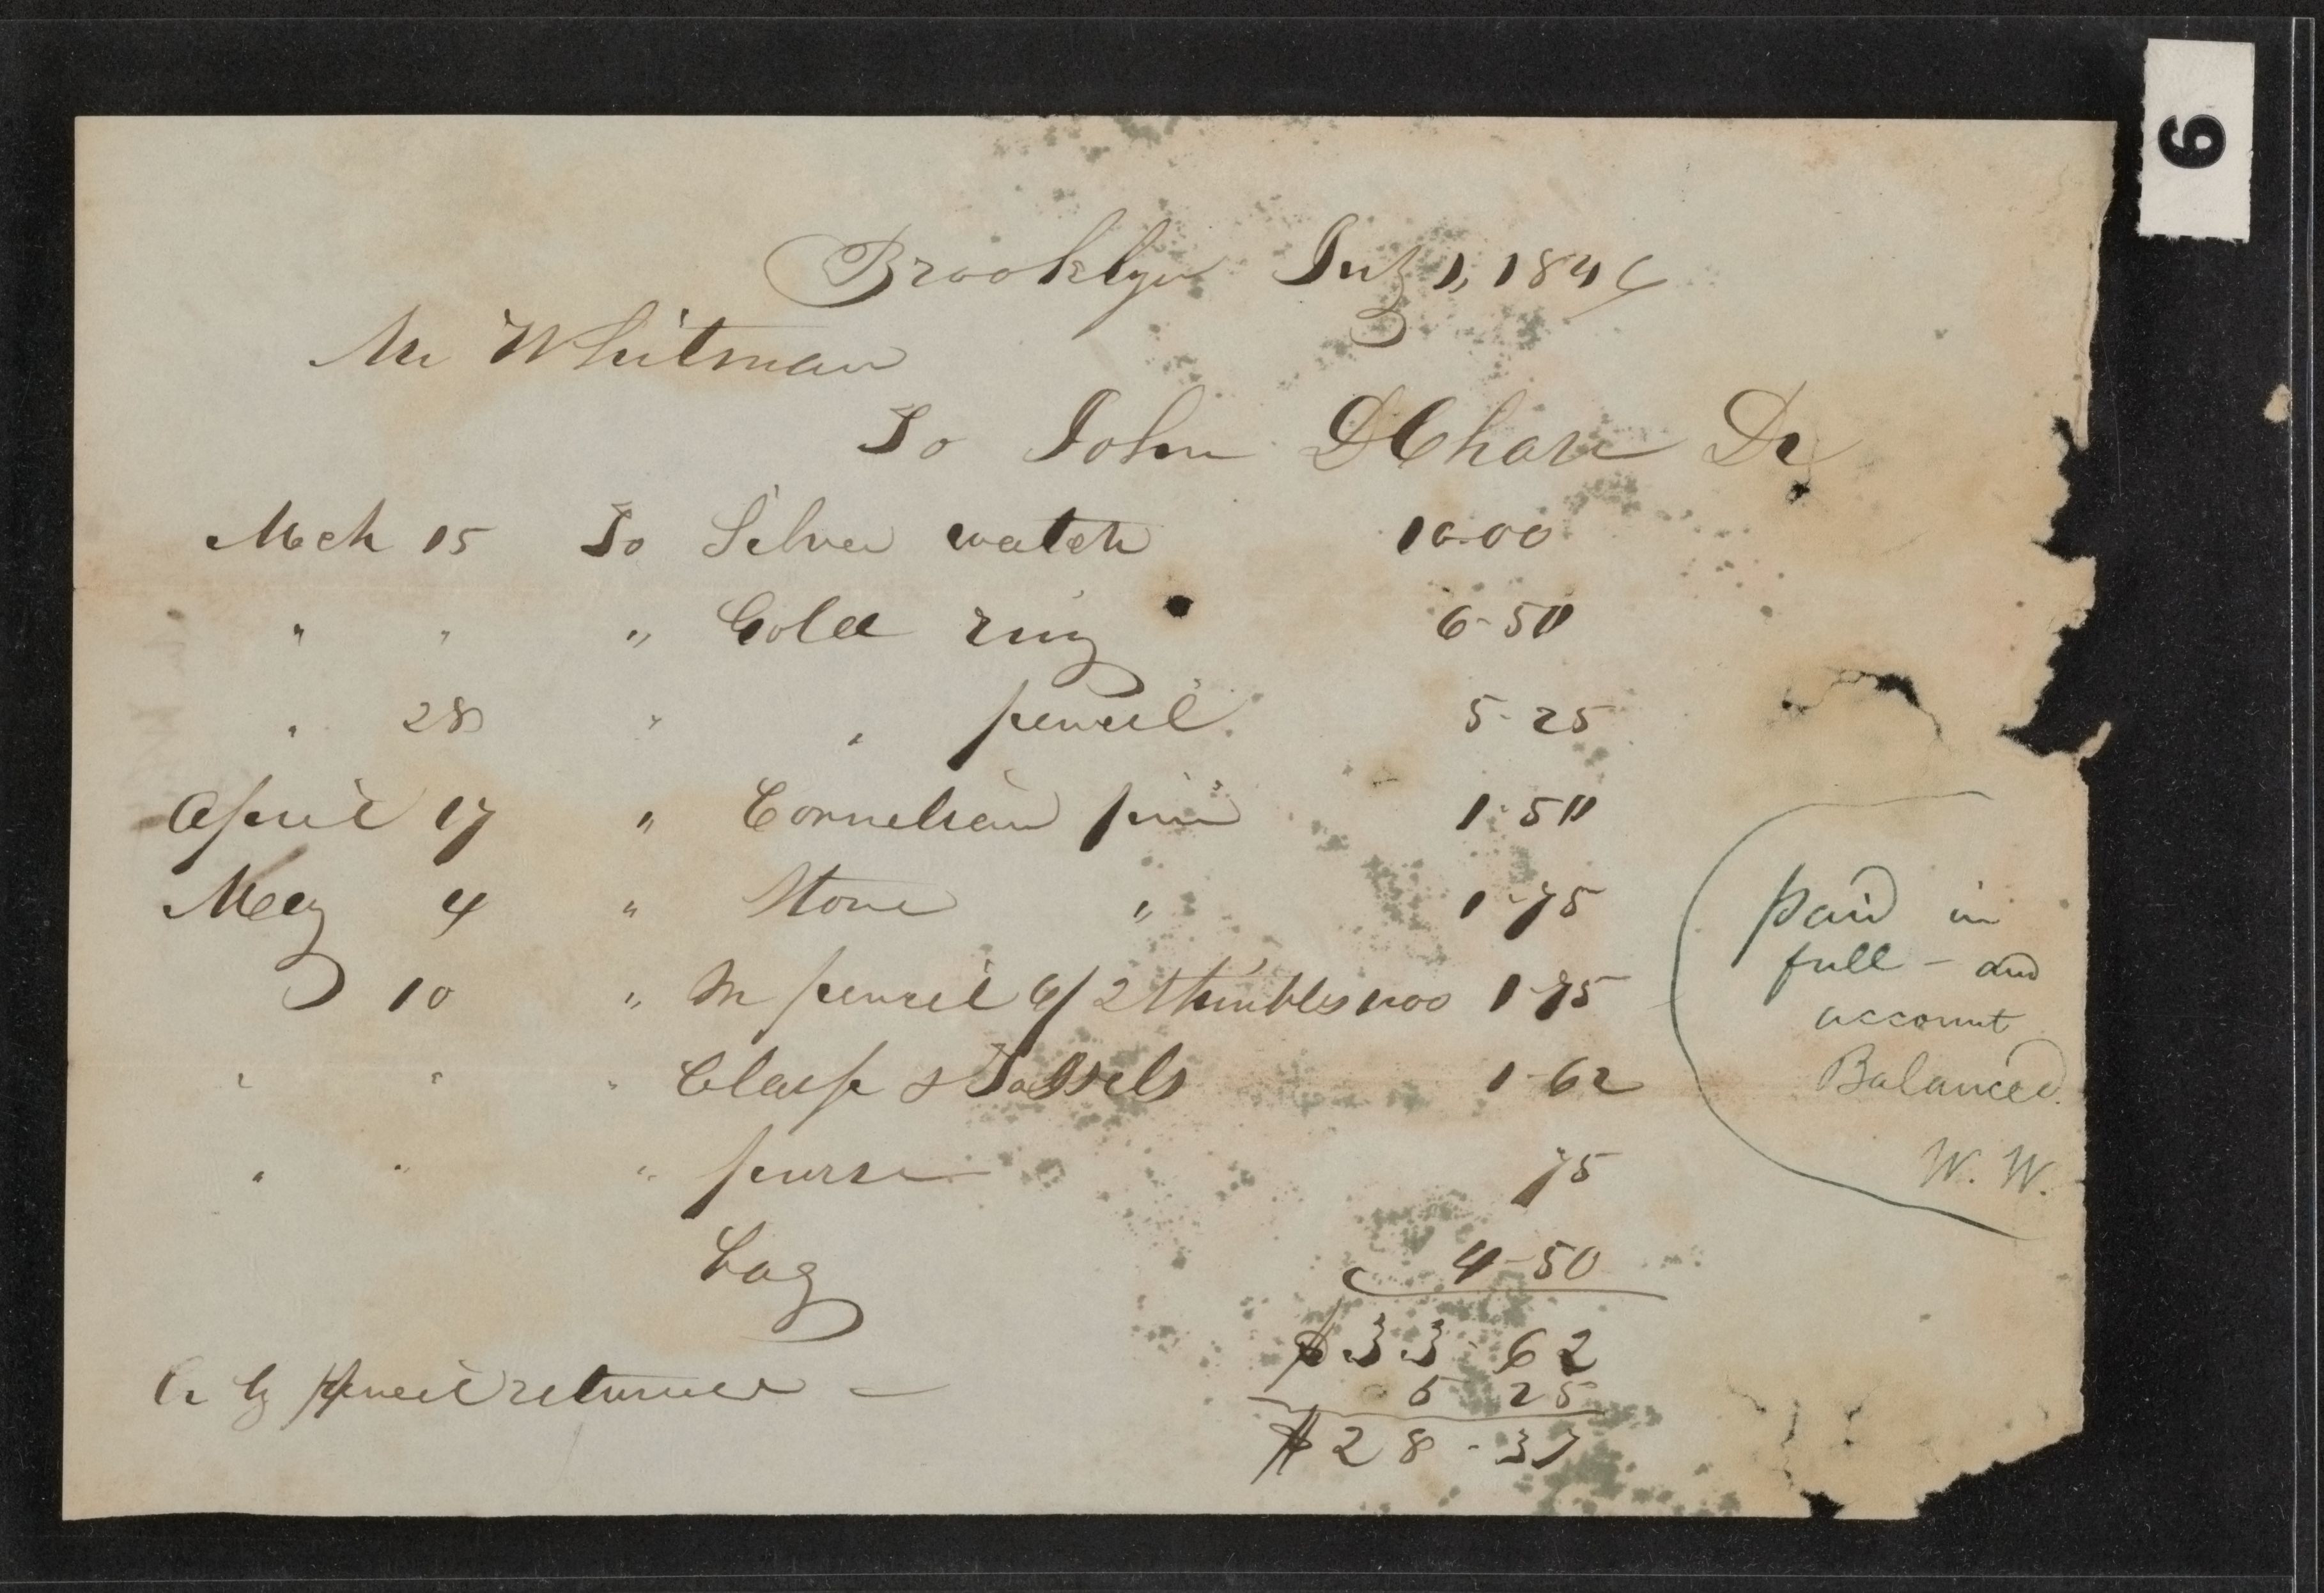 Brooklyn July 1, 1846
Mr Whitman
To John D Chase Dr
Mch 15 To Silver watch 10.00
" " " Gold ring 6-50
" 28 " " pencil 5-25
April 17 " Cornelian pin 1-50
May 4 " Stone " 1-75
10 " pencil 6/ 2 thimbles 1-75
" " " Clasp & Tassels 1-62
" " " purse 75
4-50
$33-62
Cr by pencil returned — 5 25
$28-37
paid in
full — and
account
Balanced.
W. W.
6